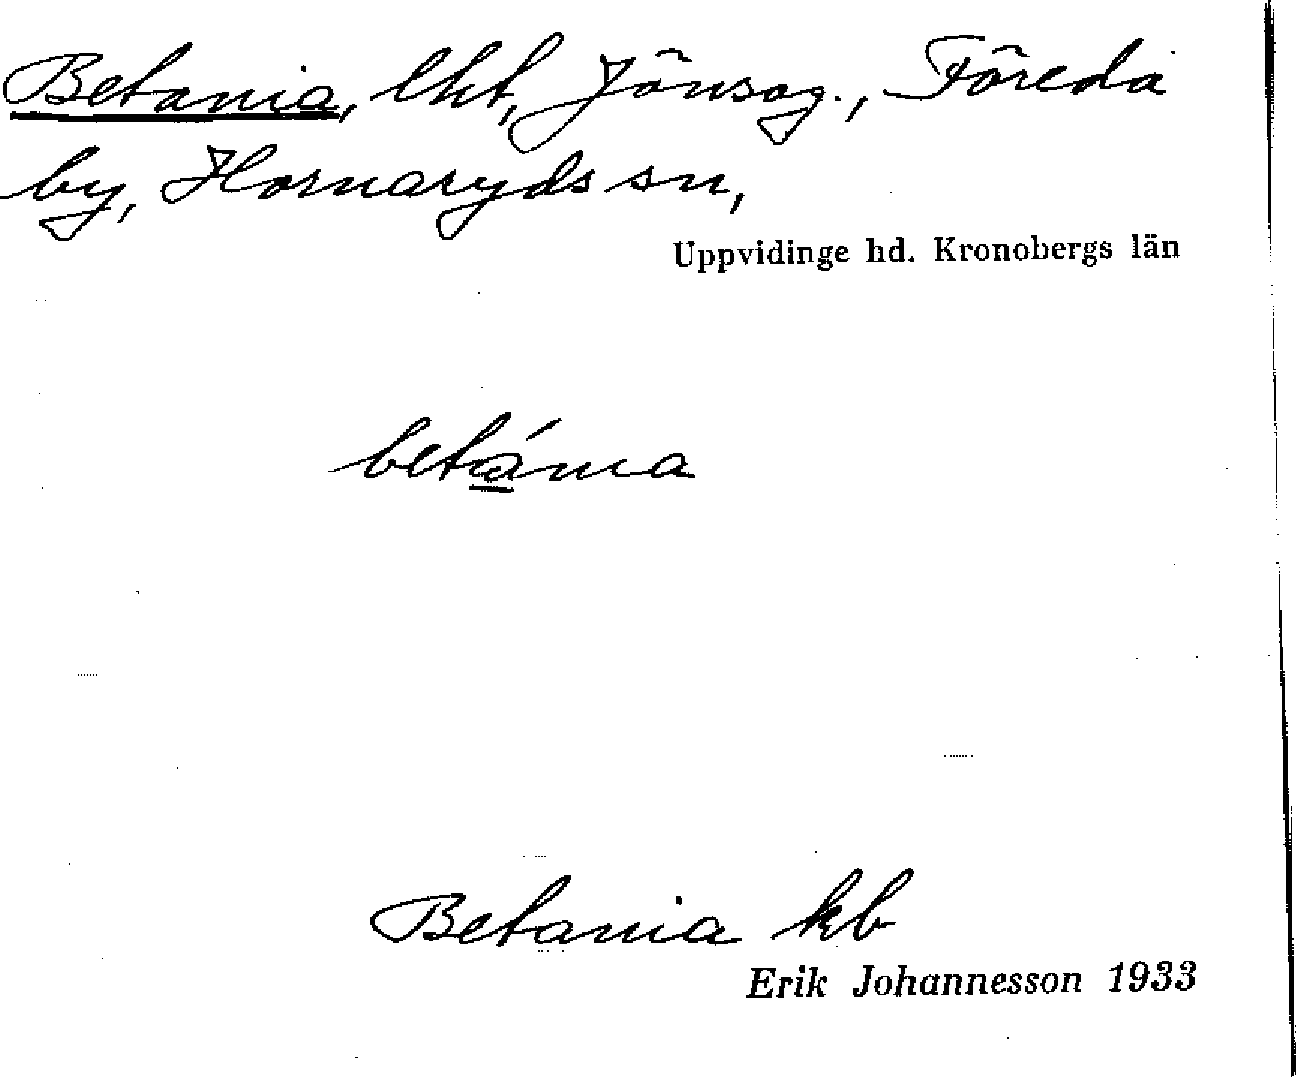 Betania, lht, Jönsag., Föreda
by, Hornaryds sn,
Uppvidinge hd. Kronobergs län
betánia
Betania kb
Erik Johannesson 1933